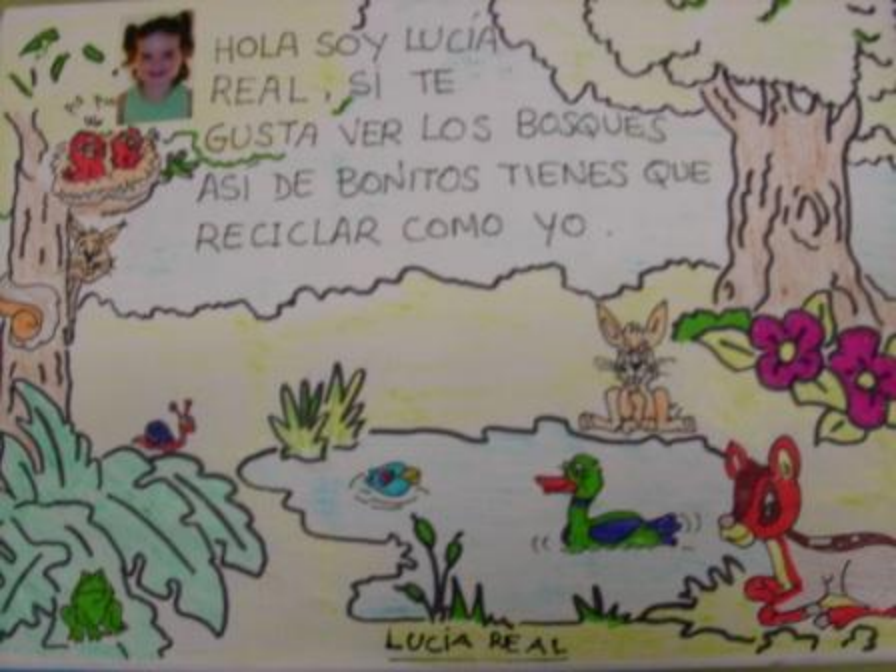 HOLA SOY LUCÍA
REAL, SI TE
GUSTA VER LOS BOSQUES
ASÍ DE BONITOS TIENES QUE
RECICLAR COMO YO.
LUCÍA REAL